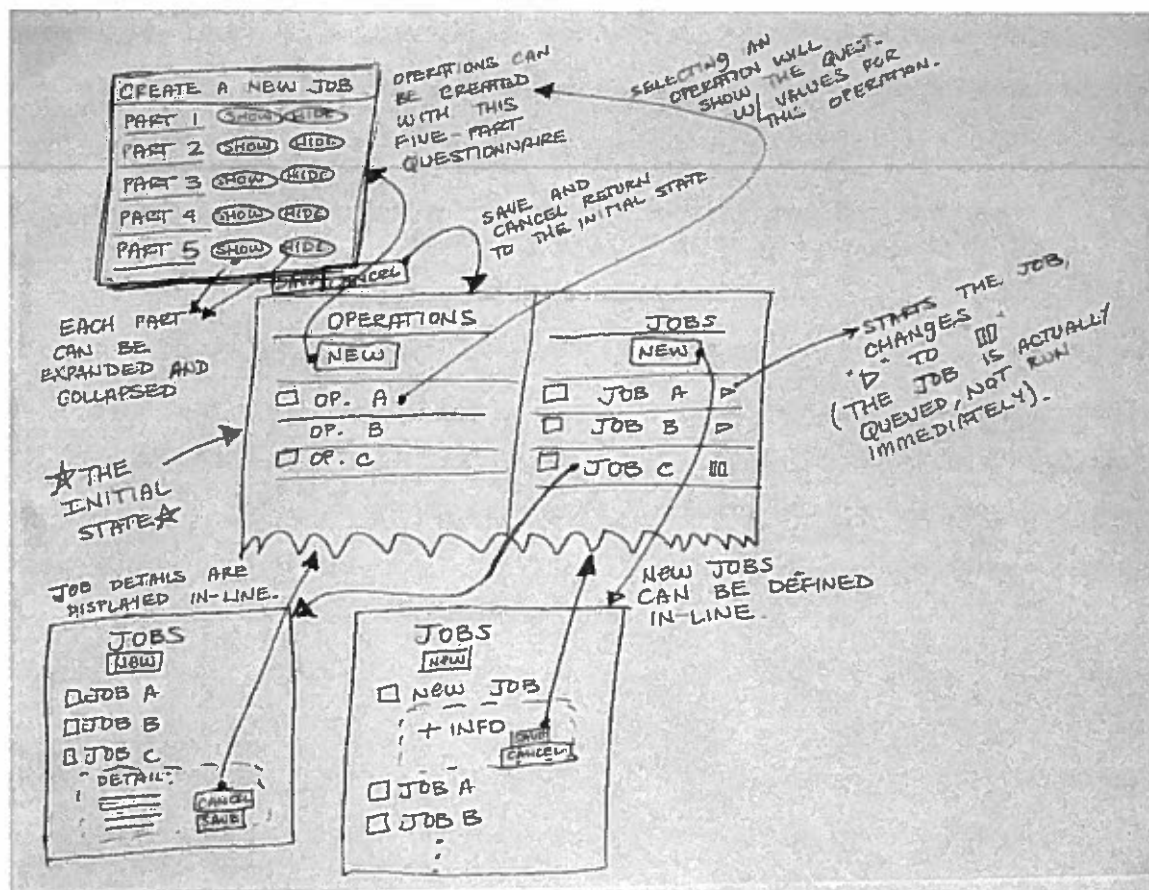 CREATE A NEW JOB
PART 1 SHOW HIDE
PART 2 SHOW HIDE
PART 3 SHOW HIDE
PART 4 SHOW HIDE
PART 5 SHOW HIDE
SAVE CANCEL
OPERATIONS CAN
BE CREATED
WITH THIS
FIVE-PART
QUESTIONNAIRE
SELECTING AN
OPERATION WILL
SHOW THE QUEST.
W/ VALUES FOR
THIS OPERATION.
SAVE AND
CANCEL RETURN
TO THE INITIAL STATE
EACH PART
CAN BE
EXPANDED AND
COLLAPSED
OPERATIONS
NEW
OP. A
OP. B
OP. C
JOBS
NEW
JOB A
JOB B
JOB C
STARTS THE JOB,
CHANGES
"▷" TO "▯▯"
(THE JOB IS ACTUALLY
QUEUED, NOT RUN
IMMEDIATELY).
☆THE
INITIAL
STATE☆
JOB DETAILS ARE
DISPLAYED IN-LINE.
NEW JOBS
CAN BE DEFINED
IN-LINE.
JOBS
NEW
JOB A
JOB B
JOB C
DETAIL:
CANCEL
SAVE
JOBS
NEW
NEW JOB
+ INFO
SAVE
CANCEL
JOB A
JOB B